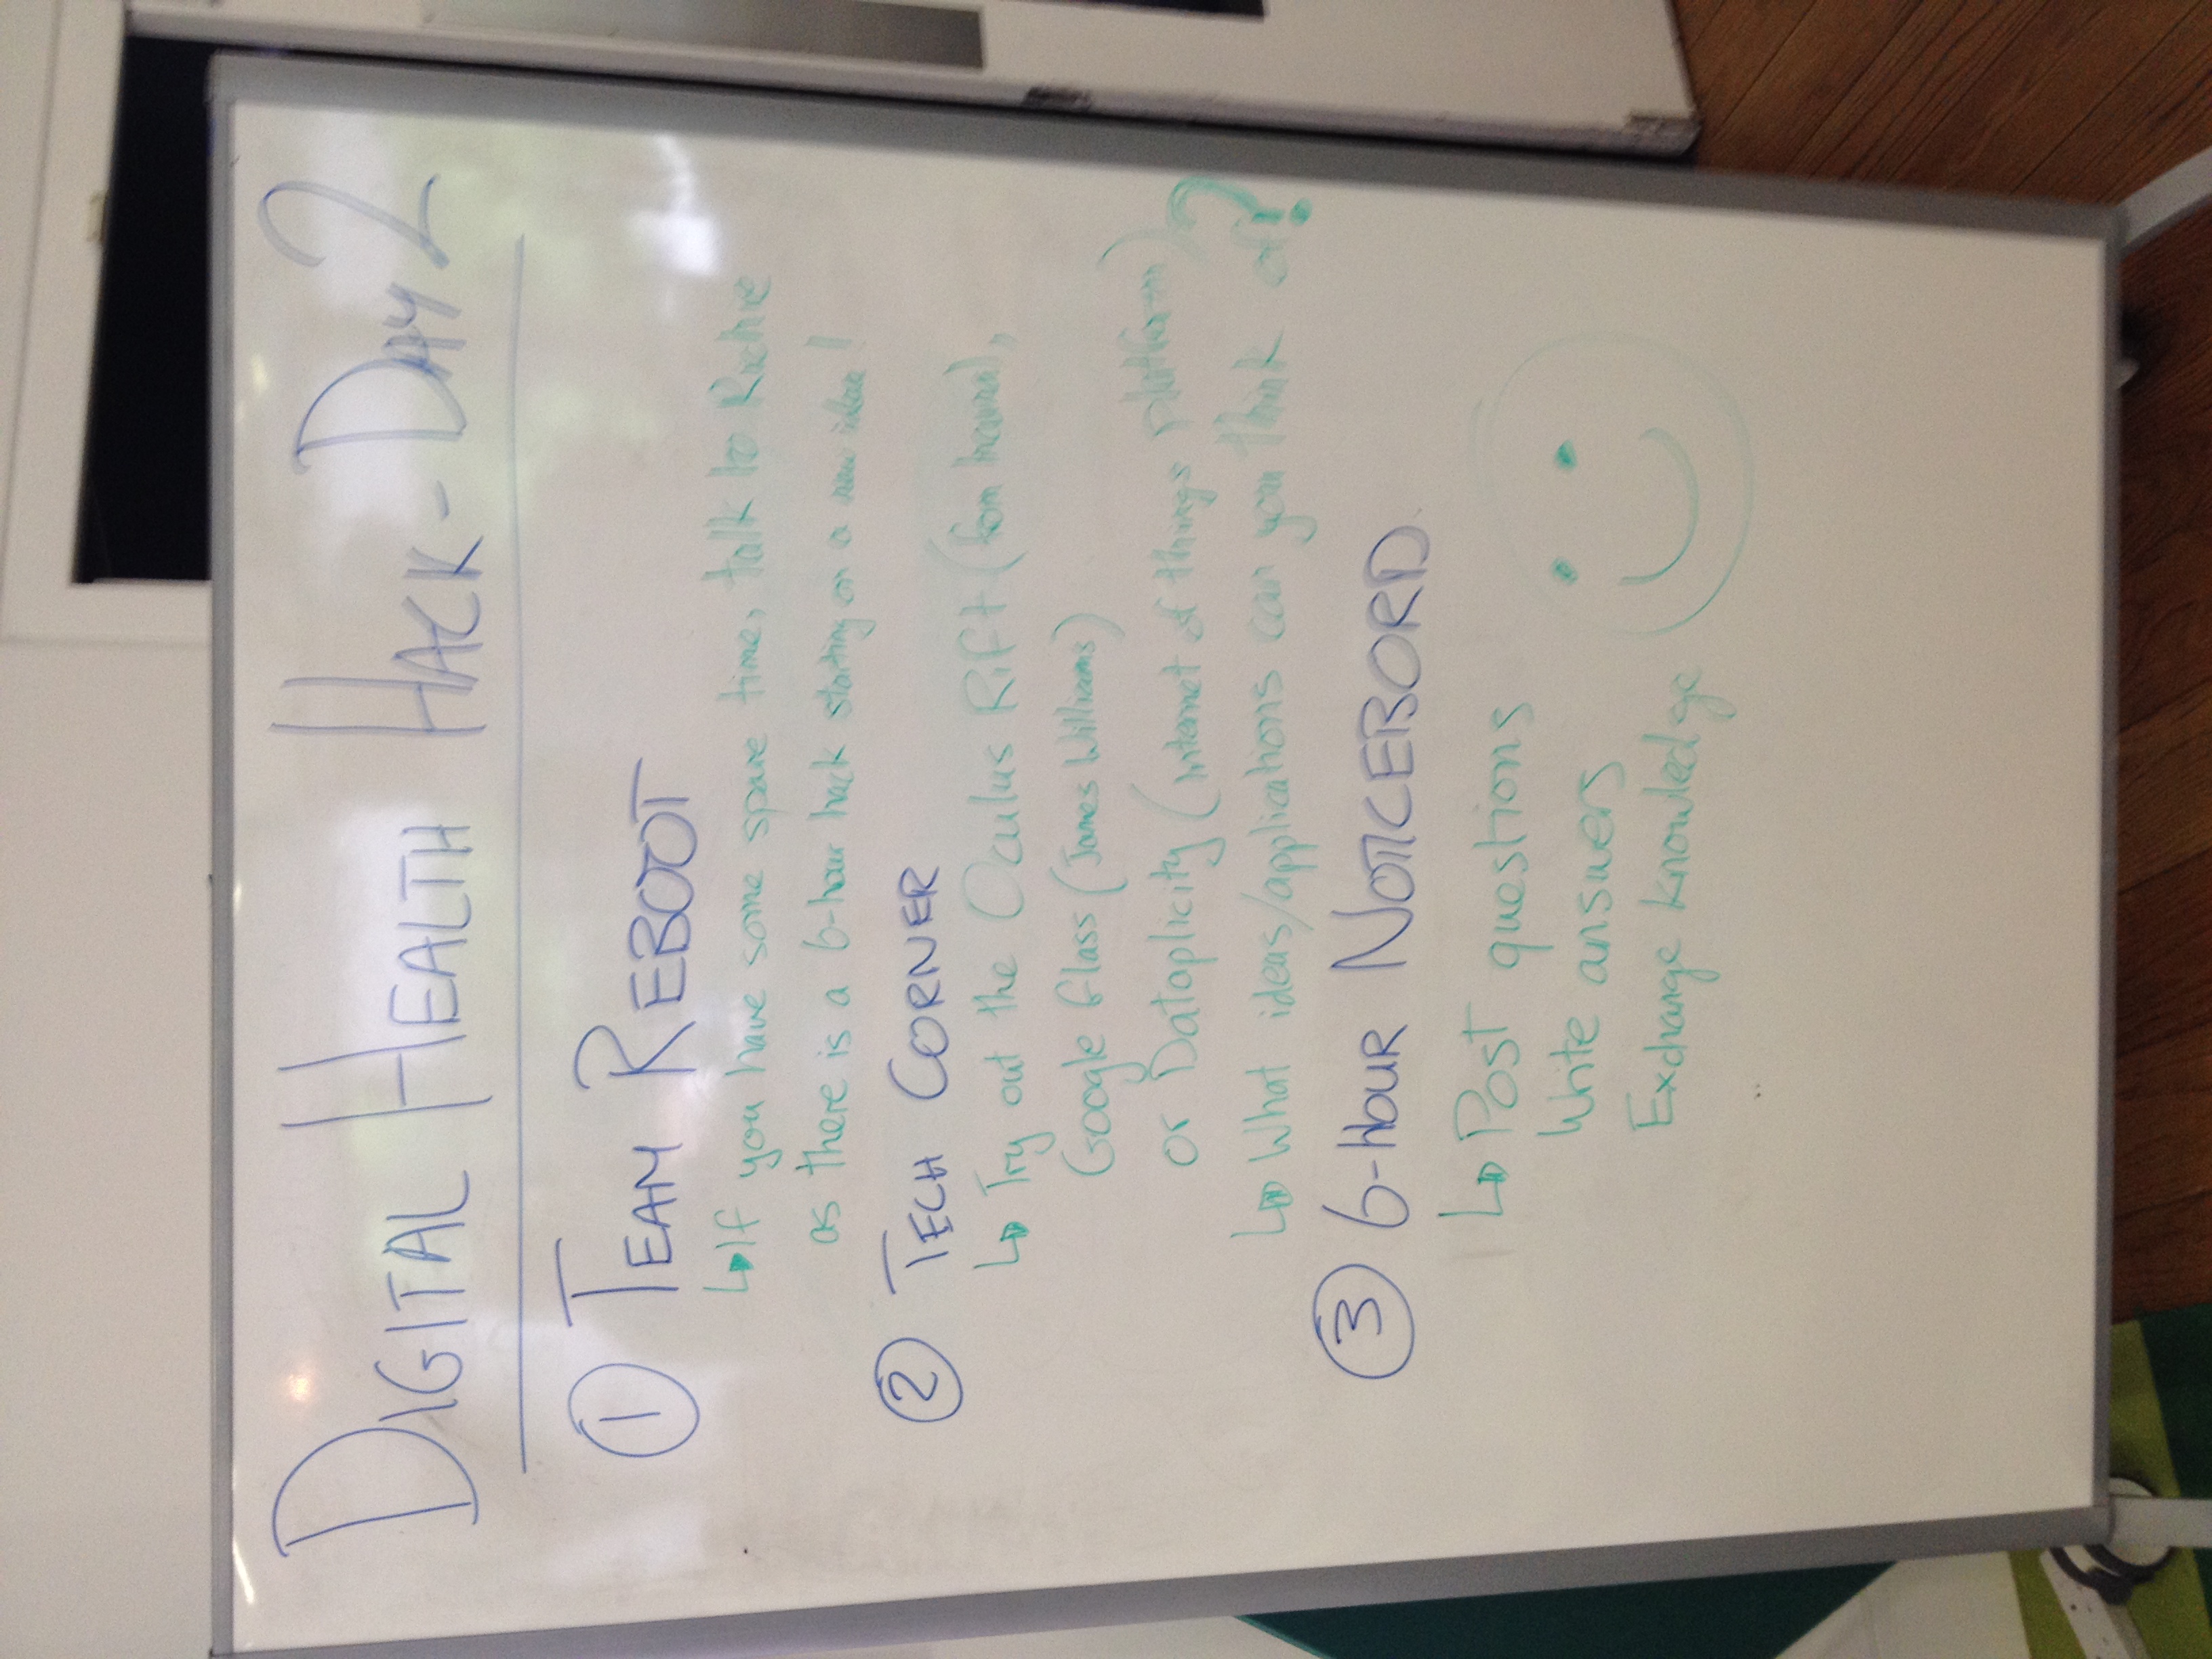 DIGITAL HEALTH HACK - DAY 2
① TEAM REBOOT
↳ If you have some spare time, talk to Richie
as there is a 6-hour hack starting on a new idea!
② TECH CORNER
↳ Try out the Oculus Rift (from
Google Glass (James Williams)
or Dataplicity (internet of things platform)
↳ What ideas/applications can you think of?
③ 6-HOUR NOTICEBORD
↳ Post questions
Write answers
Exchange knowledge